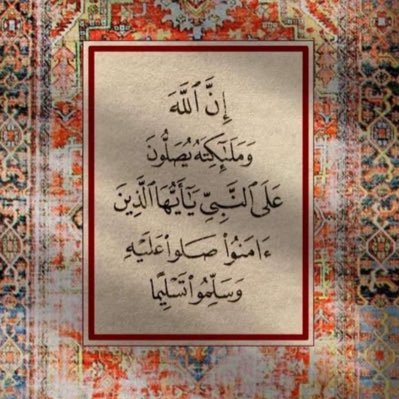 إِنَّ ٱللَّهَ
وَمَلَٰٓئِكَتَهُۥ يُصَلُّونَ
عَلَى ٱلنَّبِيِّ يَٰٓأَيُّهَا ٱلَّذِينَ
ءَامَنُوا۟ صَلُّوا۟ عَلَيْهِ
وَسَلِّمُوا۟ تَسْلِيمًا